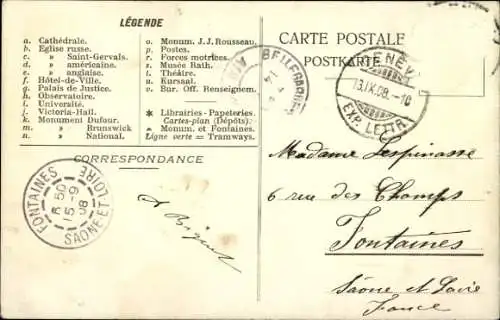 LÉGENDE
a. Cathédrale.
b. Eglise russe.
c. » Saint-Gervais.
d. » américaine.
e. » anglaise.
f. Hôtel-de-Ville.
g. Palais de Justice.
h. Observatoire.
i. Université.
j. Victoria-Hall.
k. Monument Dufour.
m. » Brunswick
n. » National.
o. Monum. J.J. Rousseau.
p. Postes.
r. Forces motrices.
s. Musée Rath.
t. Théâtre.
u. Kursaal.
v. Bur. Off. Renseignem.
* Librairies - Papeteries.
Cartes-plan (Dépôts):
Monum. et Fontaines.
Ligne verte = Tramways.
CORRESPONDANCE
CARTE POSTALE
POSTKARTE
GENÈV
13.IX.08.-10
EXP. LETTR.
BELLEGARDE
FONTAINES
50
15-9
08
SAONE-ET-LOIRE
Madame Lespinasse
6 rue des Champs
Fontaines
Saône et Loire
France